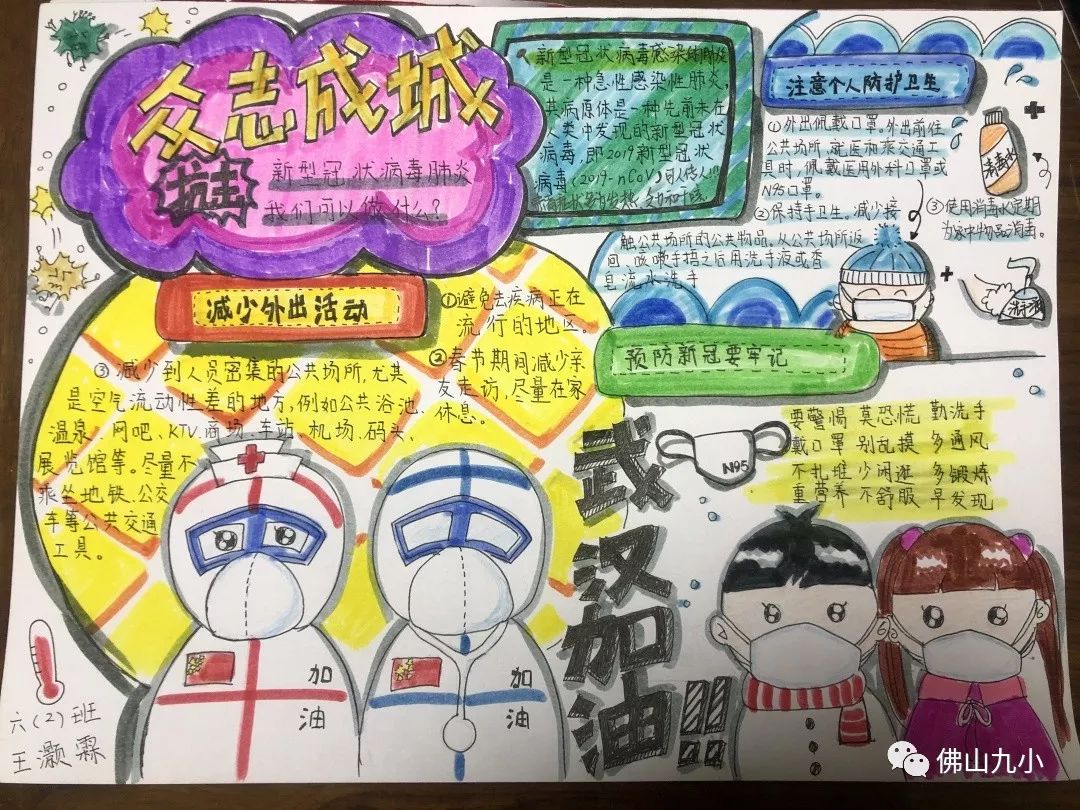 众志成城
抗击
新型冠状病毒肺炎
我们可以做什么?
新型冠状病毒感染的肺炎
是一种急性感染性肺炎,
其病原体是一种先前未在
人类中发现的新型冠状
病毒,即2019新型冠状
病毒(2019-nCoV)可人传人
注意个人防护卫生
①外出佩戴口罩。外出前往
公共场所、就医和乘交通工
具时,佩戴医用外科口罩或
N95口罩。
②保持手卫生。减少接
触公共场所的公共物品。从公共场所返
回、咳嗽手捂之后用洗手液或香
皂流水洗手
③使用消毒水定期
为家中物品消毒。
消毒水
洗手液
减少外出活动
①避免去疾病正在
流行的地区。
②春节期间减少亲
友走访,尽量在家
休息。
③减少到人员密集的公共场所,尤其
是空气流动性差的地方,例如公共浴池、
温泉、网吧、KTV、商场、车站、机场、码头、
展览馆等。尽量不
乘坐地铁、公交
车等公共交通
工具。
预防新冠要牢记
要警惕 莫恐慌 勤洗手
戴口罩 别乱摸 多通风
不扎堆 少闲逛 多锻炼
重营养 不舒服 早发现
N95
武汉加油!!
加油
加油
六(2)班
王灏霖
佛山九小